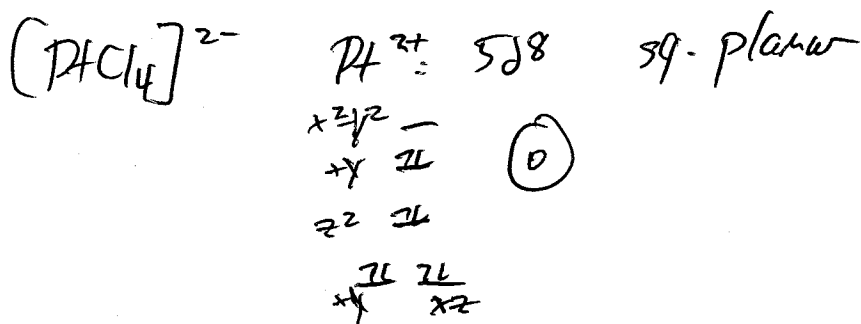 [PtCl4]2- Pt2+: 5d8 sq. planar
x2-y2 —
xy 0
z2
xy xz